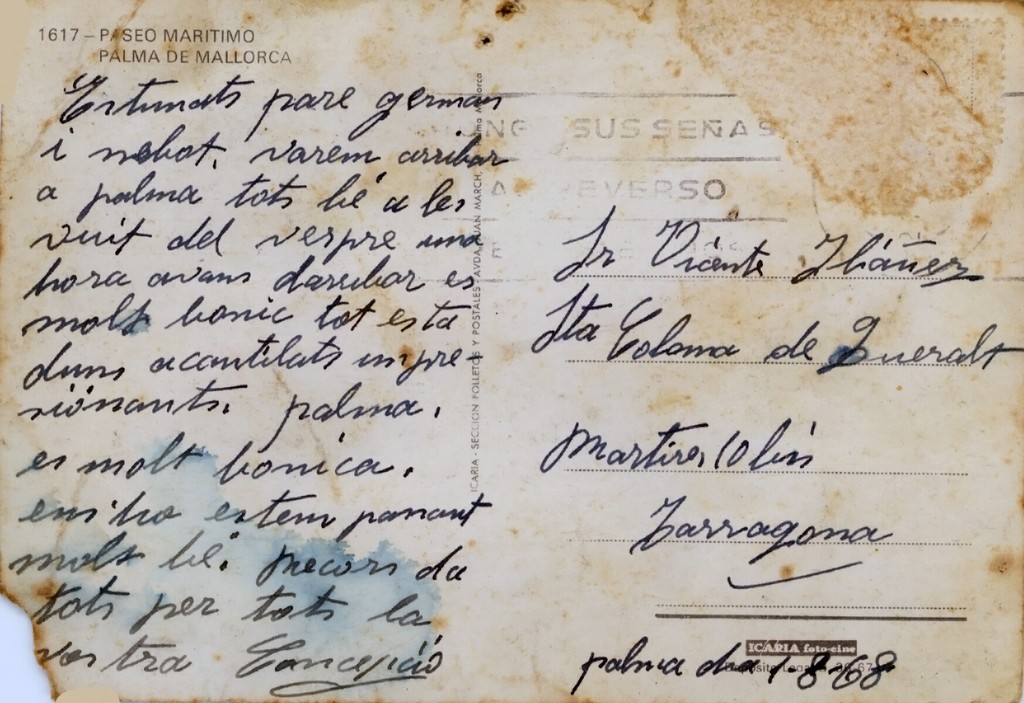 1617 – PASEO MARITIMO
PALMA DE MALLORCA
Estimats pare german
i nebot. varem arribar
a palma tots bé a les
vuit del vespre una
hora avans darribar es
molt bonic tot esta
duns acantilats impre
siönants. palma.
es molt bonica.
ens ho estem pasant
molt bé. Records da
tots per tots la
vostra Concepció
ICARIA - SECCION FOLLETOS Y POSTALES - AVDA. JUAN MARCH, Palma Mallorca
SUS SEÑAS
REVERSO
Sr Vicente Ibáñez
Sta Coloma de Queralt
Martires 10 bis
Tarragona
ICARIA foto-cine
palma dia 1-8-68